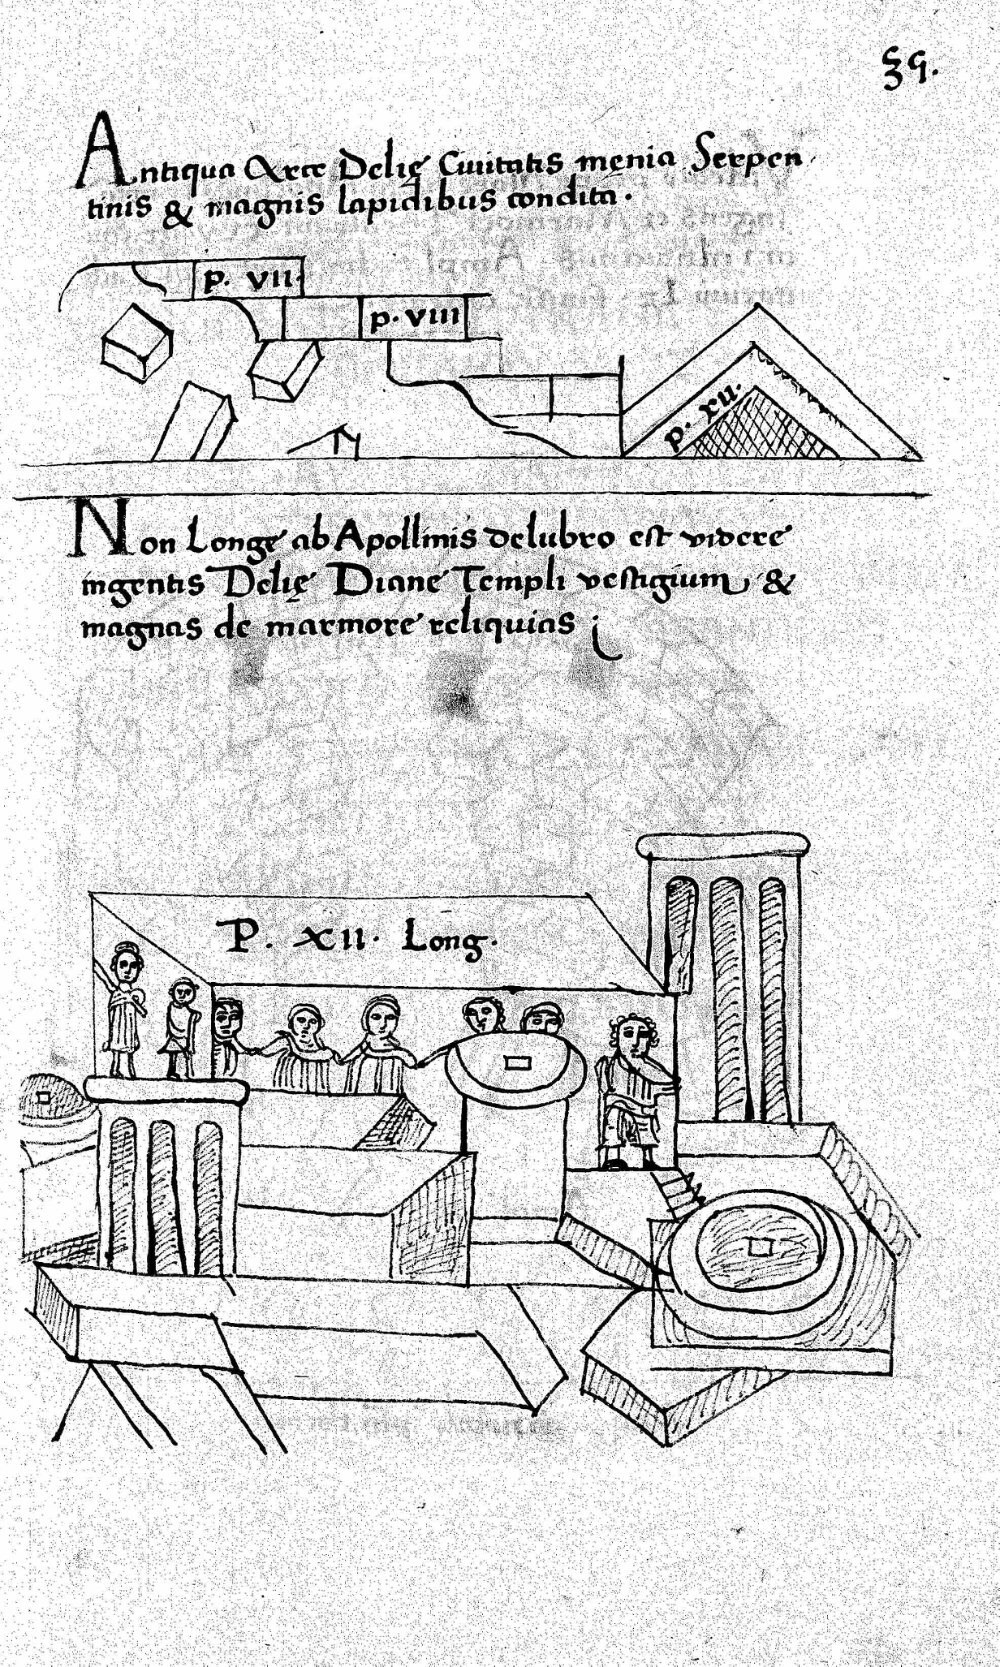 Antiqua Arce Delię Ciuitatis męnia Serpen
tinis & magnis lapidibus condita.
p. VII.
p. VIII
p. XII.
Non Longe ab Apollinis delubro est videre
ingentis Delię Diane Templi vestigium &
magnas de marmore reliquias
P. XII. Long.